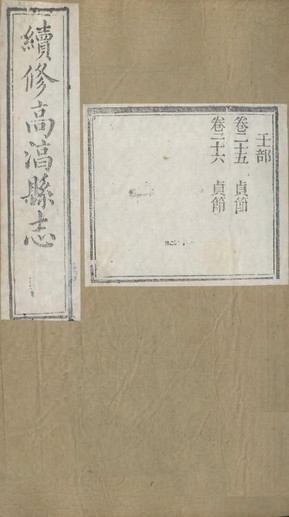 續修高淳縣志
壬部
卷二十五 貞節
卷二十六 貞節